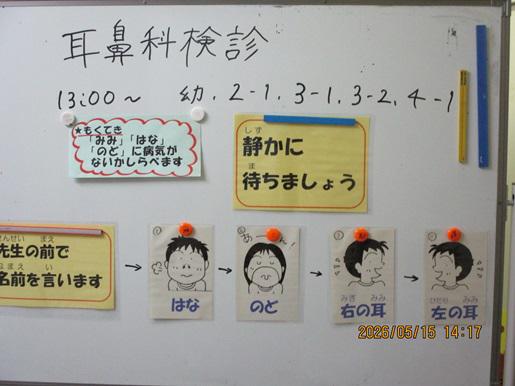 耳鼻科検診
13:00～ 幼、2-1、3-1、3-2、4-1
★もくてき
「みみ」「はな」
「のど」に病気が
ないかしらべます
しず
静かに
ま
待ちましょう
せんせい まえ
先生の前で
なまえ い
名前を言います
→
はな
→
あーん!
のど
→
みぎ みみ
右の耳
→
ひだり みみ
左の耳
2026/05/15 14:17